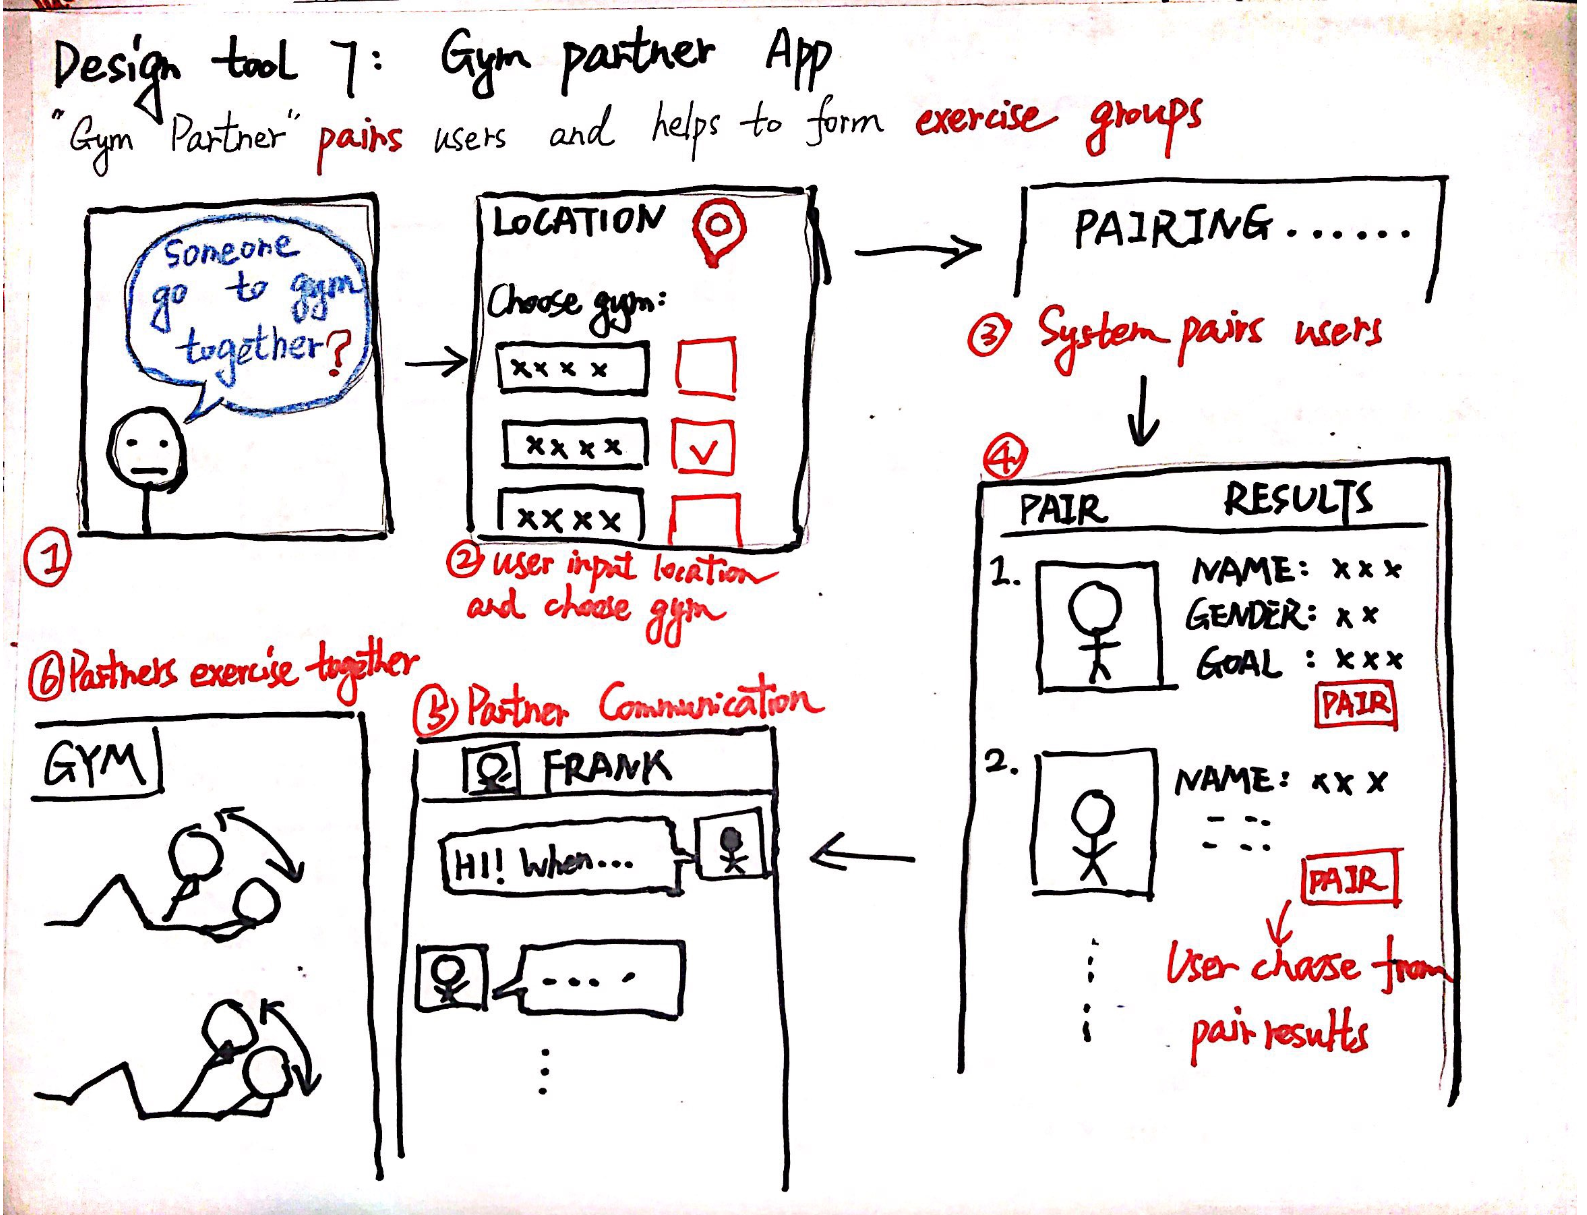 Design tool 7: Gym partner App
"Gym Partner" pairs users and helps to form exercise groups
Someone
go to gym
together?
①
LOCATION
Choose gym:
xxxx
xxxx
xxxx
② user input location
and choose gym
PAIRING......
③ System pairs users
④
PAIR RESULTS
1.
NAME: xxx
GENDER: xx
GOAL : xxx
PAIR
2.
NAME: xxx
PAIR
User choose from
pair results
⑤ Partner Communication
FRANK
HI! When...
....
⑥ Partners exercise together
GYM